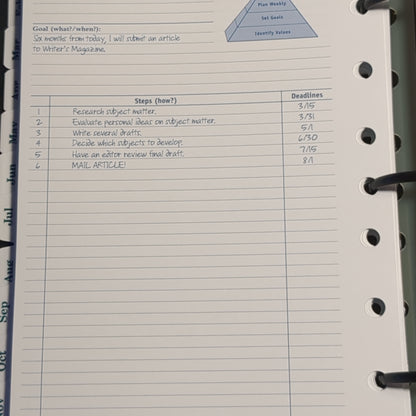 Plan Weekly
Set Goals
Identify Values
Goal (what?/when?):
Six months from today, I will submit an article
to Writer's Magazine.
Steps (how?) Deadlines
1 Research subject matter. 3/15
2 Evaluate personal ideas on subject matter. 3/31
3 Write several drafts. 5/1
4 Decide which subjects to develop. 6/30
5 Have an editor review final draft. 7/15
6 MAIL ARTICLE! 8/1
Mar
Apr
May
Jun
Jul
Aug
Sep
Oct